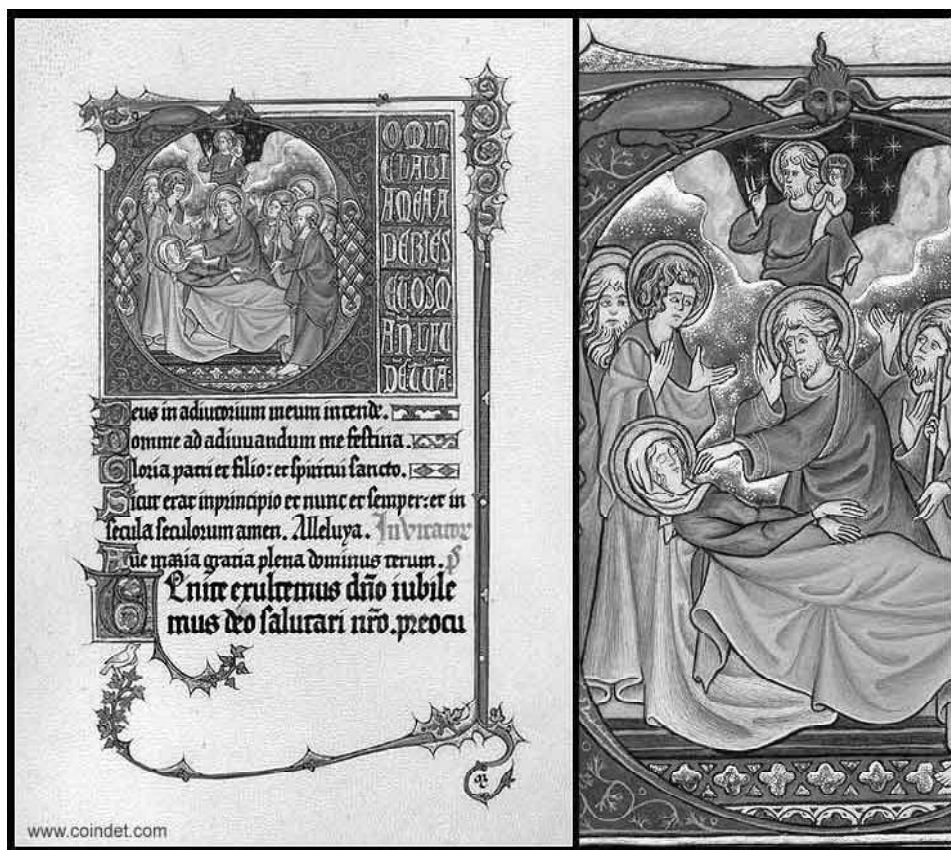 OMIN
E LABI
A MEA A
PERIES
ET OS M
DE TUA:
Deus in adiutorium meum intende.
Domine ad adiuuandum me festina.
Gloria patri et filio: et spiritui sancto.
Sicut erat inprincipio et nunc et semper: et in
secula seculorum amen. Alleluya. Invitator
Aue maria gratia plena dominus tecum.
Venite exultemus dño iubile
mus deo salutari nr̃o. preocu
www.coindet.com